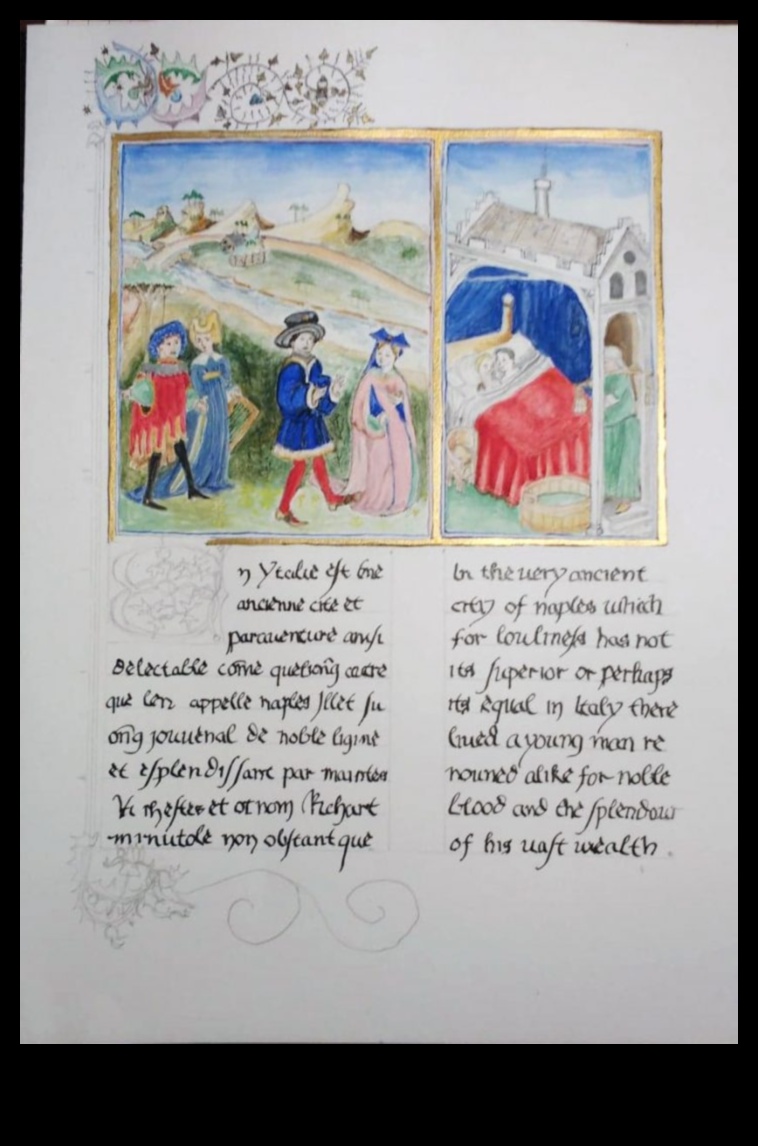 n Ytalie est une
ancienne cite et
paraventure ausi
delectable come quelzong autre
que len appelle naples Illet fu
ong jouvenal de noble ligine
et esplendissant par maintes
et ot nom Richart
minutole non obstant que
In the very ancient
city of naples which
for louliness has not
its superior or perhaps
its equal in Italy there
lived a young man re
nouned alike for noble
blood and the splendour
of his vast wealth.